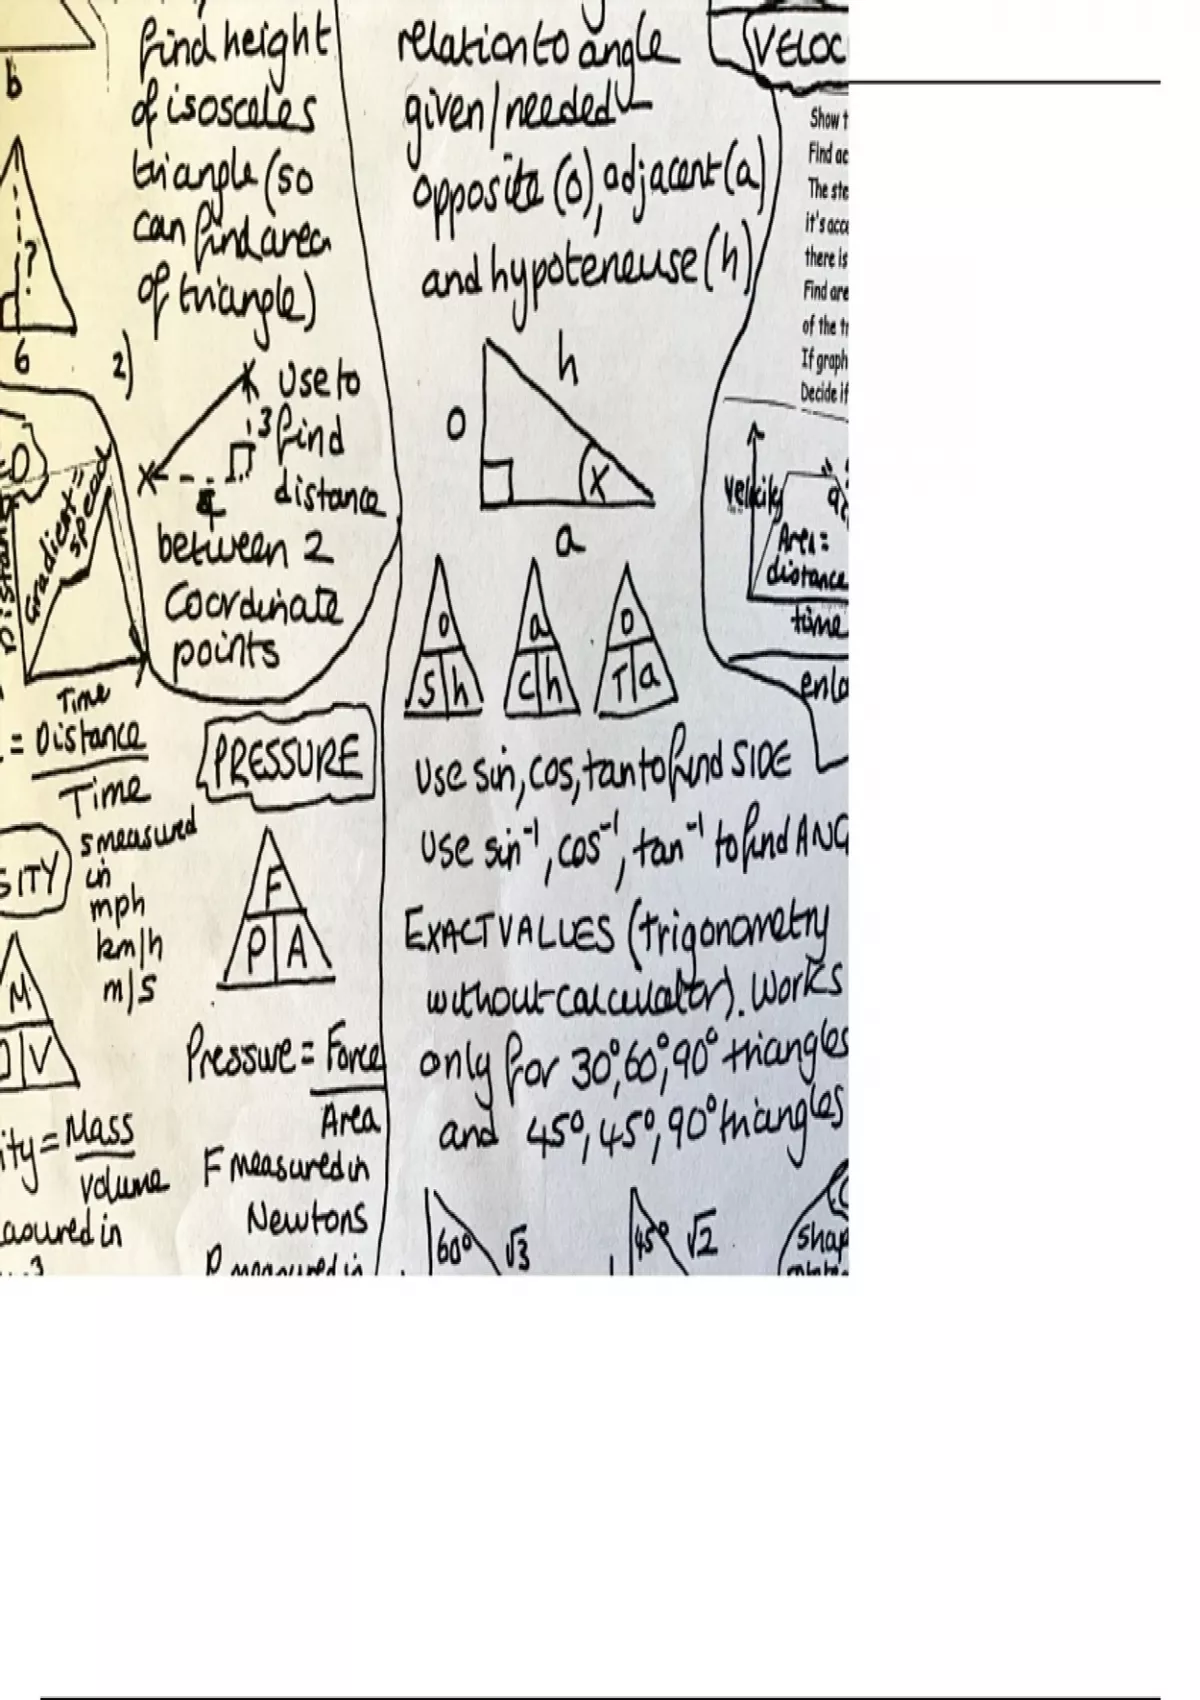 b
find height
of isosceles
triangle (so
can find area
of triangle)
?
6
2)
use to
find
distance
between 2
coordinate
points
3
4
Gradient =
speed
Time
= Distance
Time
s measured
in
mph
km/h
m/s
SITY
M
V
ity = Mass
Volume
asured in
PRESSURE
F
P A
Pressure = Force
Area
F measured in
Newtons
P measured in
relation to angle
given/needed
opposite (o), adjacent (a)
and hypoteneuse (h)
h
o
x
a
o
s h
a
c h
o
T a
Use sin, cos, tan to find SIDE
Use sin⁻¹, cos⁻¹, tan⁻¹ to find ANG
EXACT VALUES (trigonometry
without calculator). Works
only for 30°, 60°, 90° triangles
and 45°, 45°, 90° triangles
60° √3
45° √2
VELOC
Show t
Find ac
The ste
it's acc
there is
Find are
of the tr
If graph
Decide if
Velocity
Area =
distance
time
enla
shap